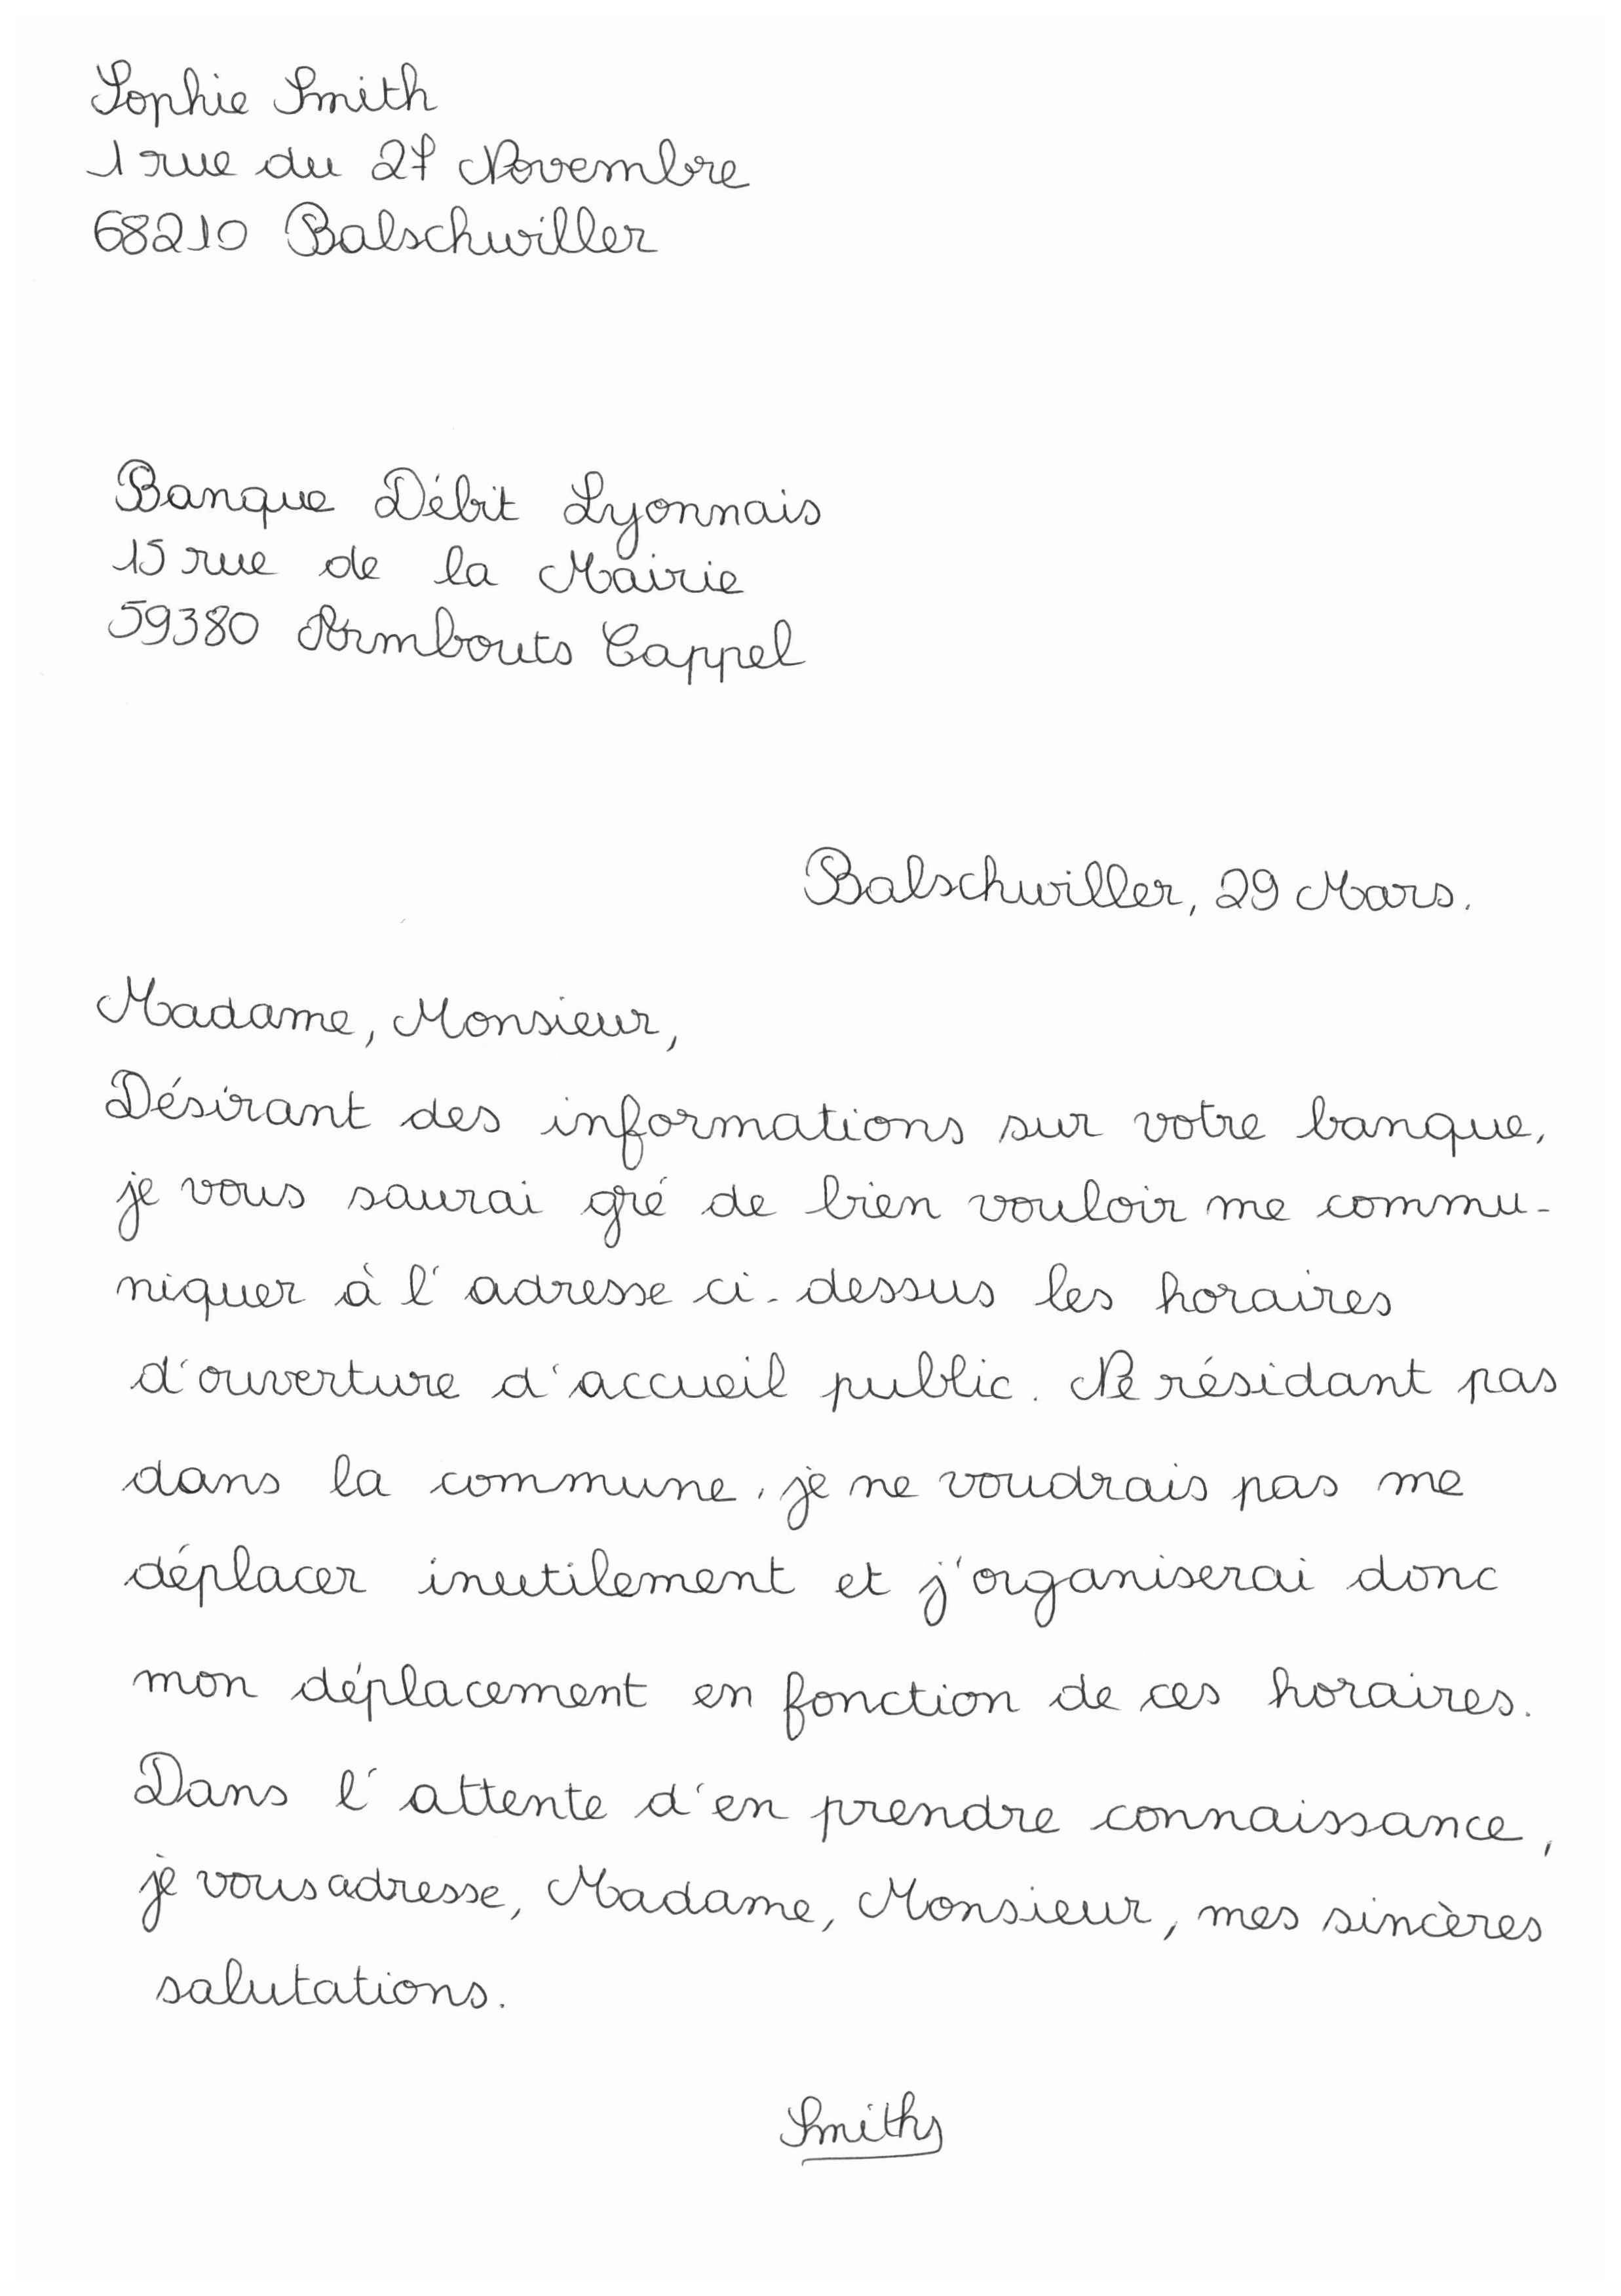 Sophie Smith
1 rue du 27 Novembre
68210 Balschwiller
Banque Débit Lyonnais
15 rue de la Mairie
59380 Armbouts Cappel
Balschwiller, 29 Mars.
Madame, Monsieur,
Désirant des informations sur votre banque,
je vous saurai gré de bien vouloir me commu-
niquer à l'adresse ci-dessus les horaires
d'ouverture d'accueil public. Ne résidant pas
dans la commune, je ne voudrais pas me
déplacer inutilement et j'organiserai donc
mon déplacement en fonction de ces horaires.
Dans l'attente d'en prendre connaissance,
je vous adresse, Madame, Monsieur, mes sincères
salutations.
Smiths